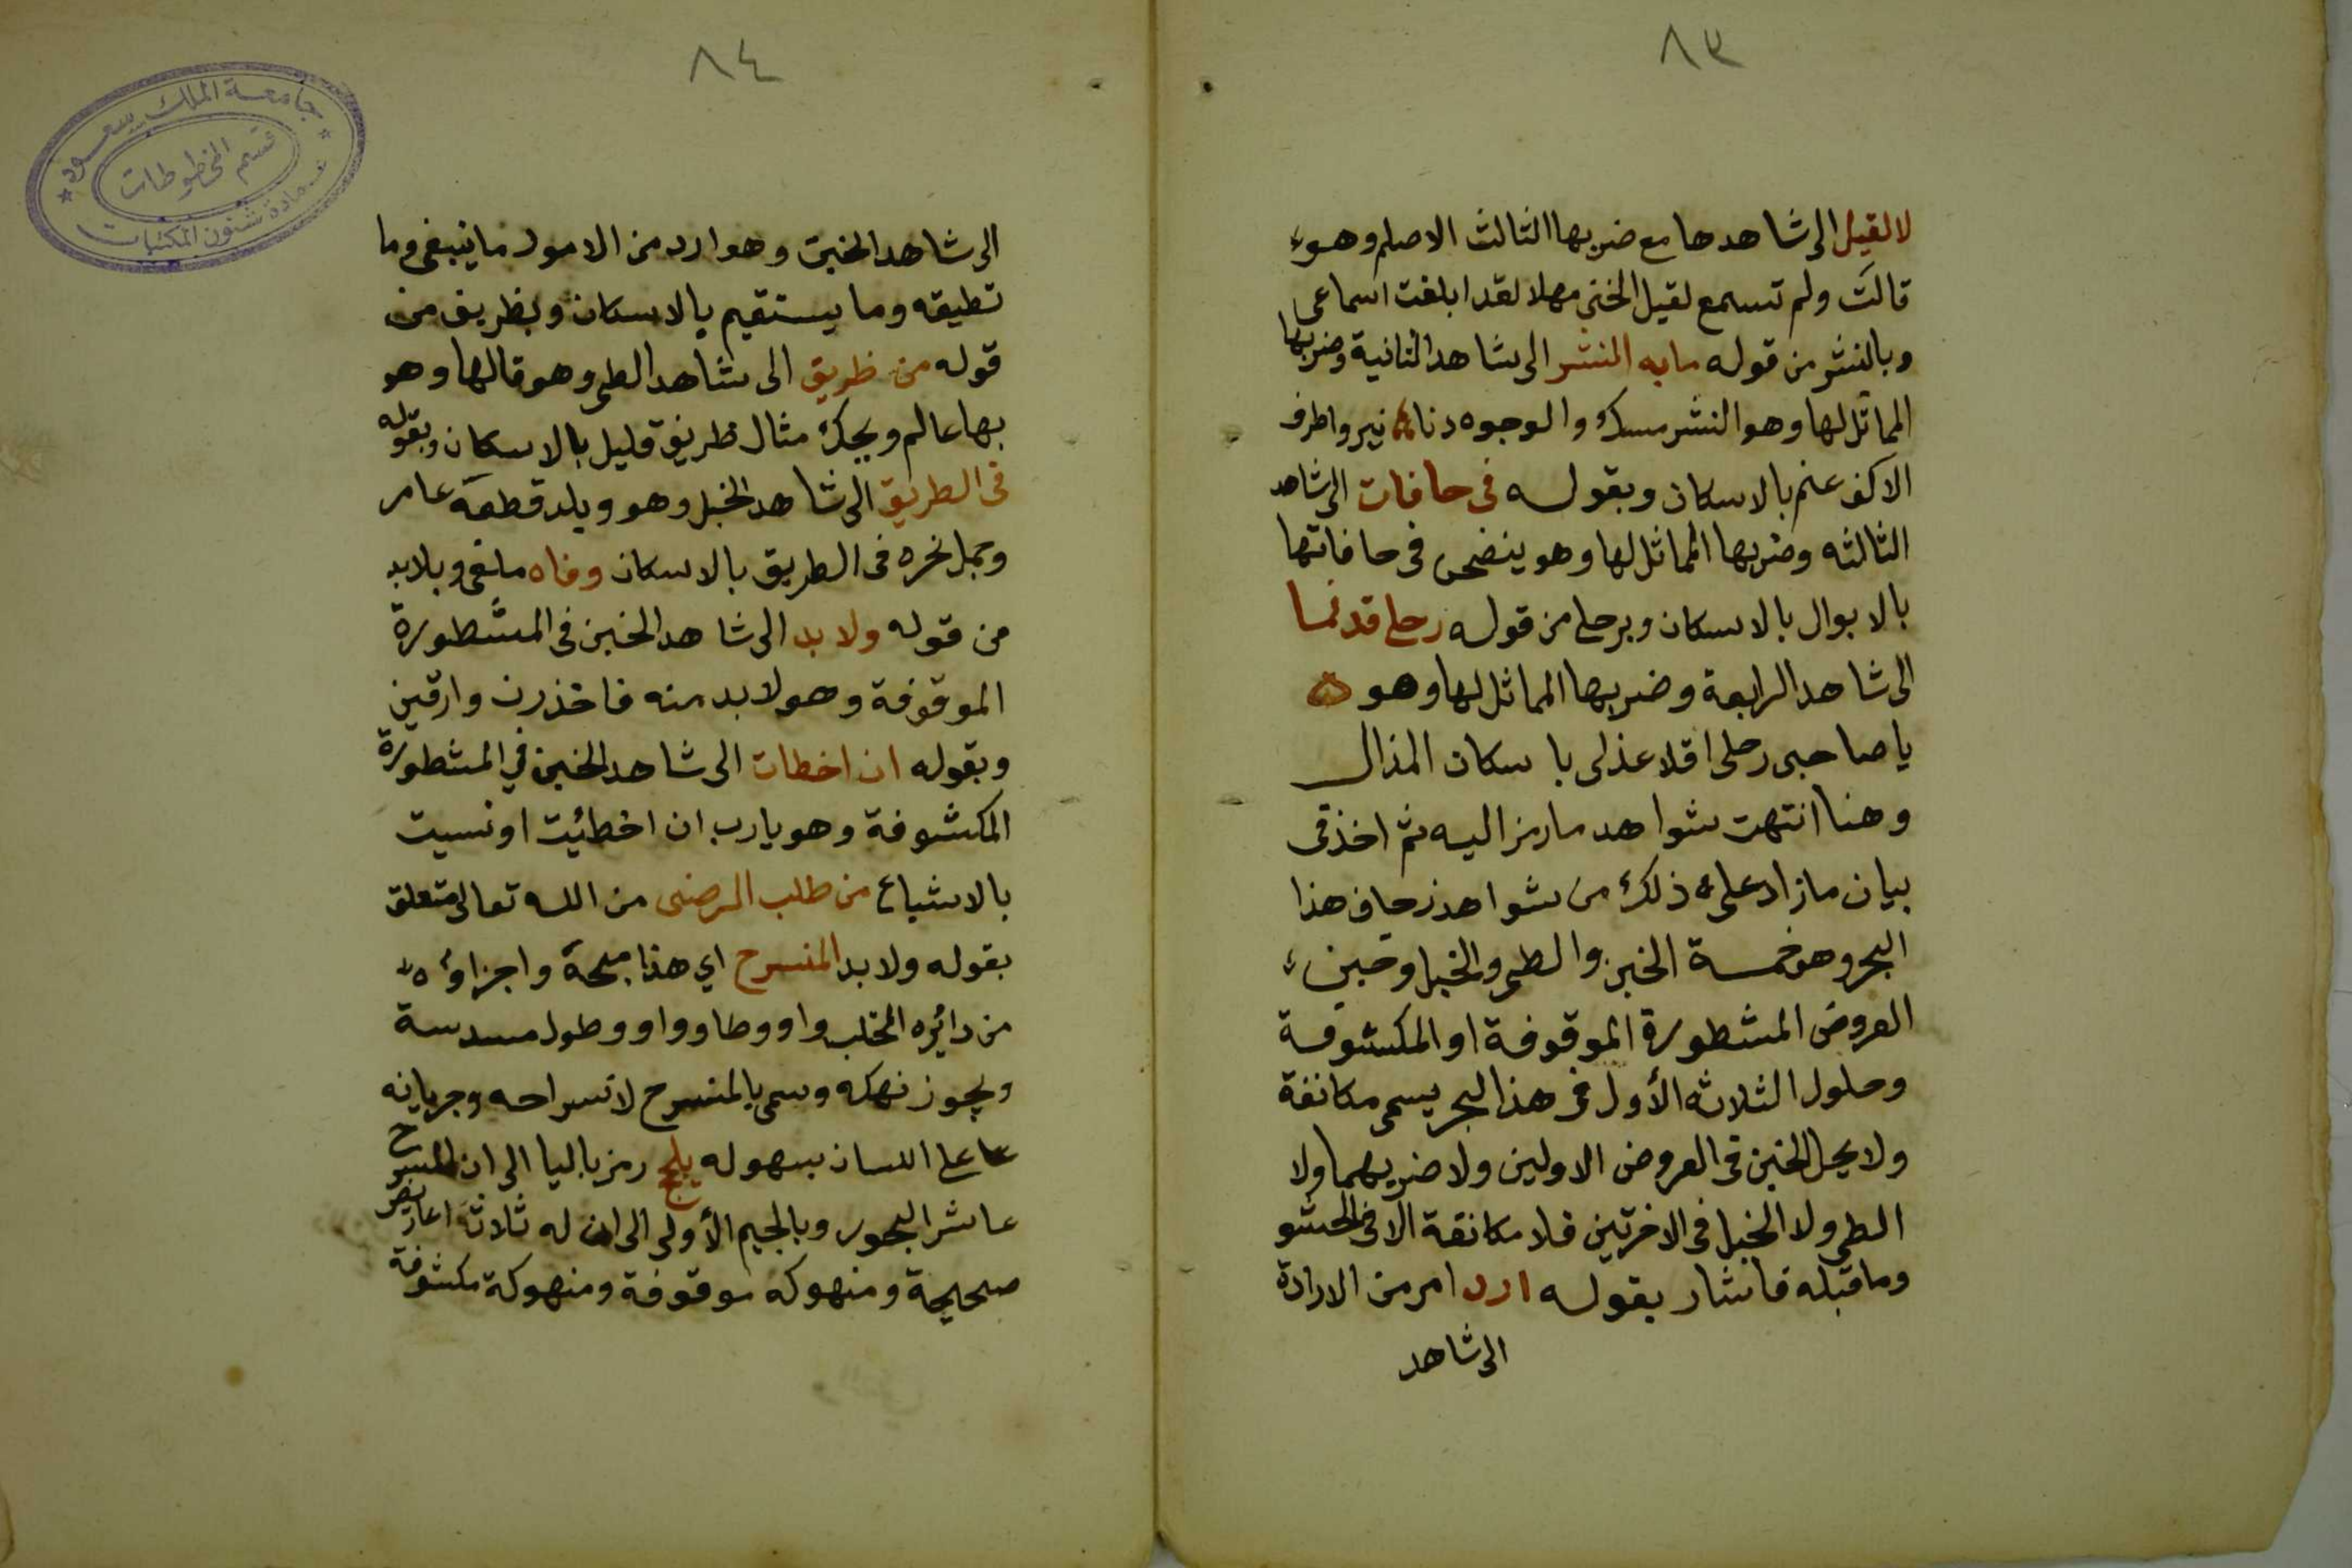 ٨٣
لا لقيل الى شاهدها مع ضربها الثالث الاصلم وهو
قالت ولم تسمع لقيل الخنى مهلا لقد ابلغت اسماعى
وبالنشر من قوله ما به المنشر الى شاهد الثانية وضربها
المماثل لها وهو النشر مسك والوجوه دنا نير واطرف
الاكف عنم بالاسكان وبقوله فى حافات الى شاهد
الثالثه وضربها المماثل لها وهو ينضحن فى حافاتها
بالابوال بالاسكان وبرحلى من قوله رحلى قد نما
الى شاهد الرابعة وضربها المماثل لها وهو
يا صاحبى رحلى اقلا عذلى باسكان المذال
وهنا انتهت شواهد ما رمز اليه ثم اخذ فى
بيان ما زاد على ذلك من شواهد زحاف هذا
البحر وهو خمسة الخبن والطى والخبل وخبن
العروض المشطورة الموقوفة او المكشوفة
وحلول الثلاثه الأول فى هذا البحر يسمى مكانفة
ولا يحل الخبن فى العروض الاولين ولا ضربهما ولا
الطى ولا الخبل فى الاخرتين فلا مكانفة الا فى الحشو
وما قبله فاشار بقوله ارد امر من الارادة
الى شاهد
٨٤
جامعة الملك سعود
قسم المخطوطات
عمادة شئون المكتبات
الى شاهد الخبن وهو ارد من الامور ما ينبغى وما
تطيقه وما يستقيم بالاسكان وبظريف من
قوله من ظريق الى شاهد الطى وهو قال لها وهو
بها عالم ويحك مثال ظريف قليل بالاسكان وبقوله
فى الطريق الى شاهد الخبل وهو وبلد قطعه عامر
وجمل نحره فى الطريق بالاسكان وفاه ملغى وبلابد
من قوله ولا بد الى شاهد الخبن فى المشطورة
الموقوفة وهو لابد منه فاخذرن وارقين
وبقوله ان اخطات الى شاهد الخبن في المشطورة
المكشوفة وهو يارب ان اخطئيت او نسيت
بالاشباع من طلب الرضى من الله تعالى متعلق
بقوله ولا بد المنسرح اي هذا مبحثه واجزاوه
من دايره المجتلب واو وطا وواو وطول مسدسة
ويجوز نهكه وسمى بالمنسرح لانسراحه وجريانه
عا على اللسان بسهوله يلج رمز باليا الى ان المنسرح
عاشر البحور وبالجيم الأولى الى ان له ثلاث اعاريض
صحيحة ومنهوكه موقوفة ومنهوكة مكشوفة